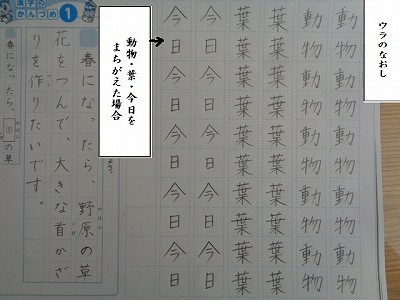 ウラのなおし
動物動物動物動物動物
動物動物動物動物動物
葉葉葉葉葉葉葉葉葉葉
葉葉葉葉葉葉葉葉葉葉
今日今日今日今日今日
今日今日今日今日今日
動物・葉・今日を
まちがえた場合
漢字の
かんづめ 1
春になったら、野原の草
花をつんで、大きな首かざ
りを作りたいです。
春になったら、①の草